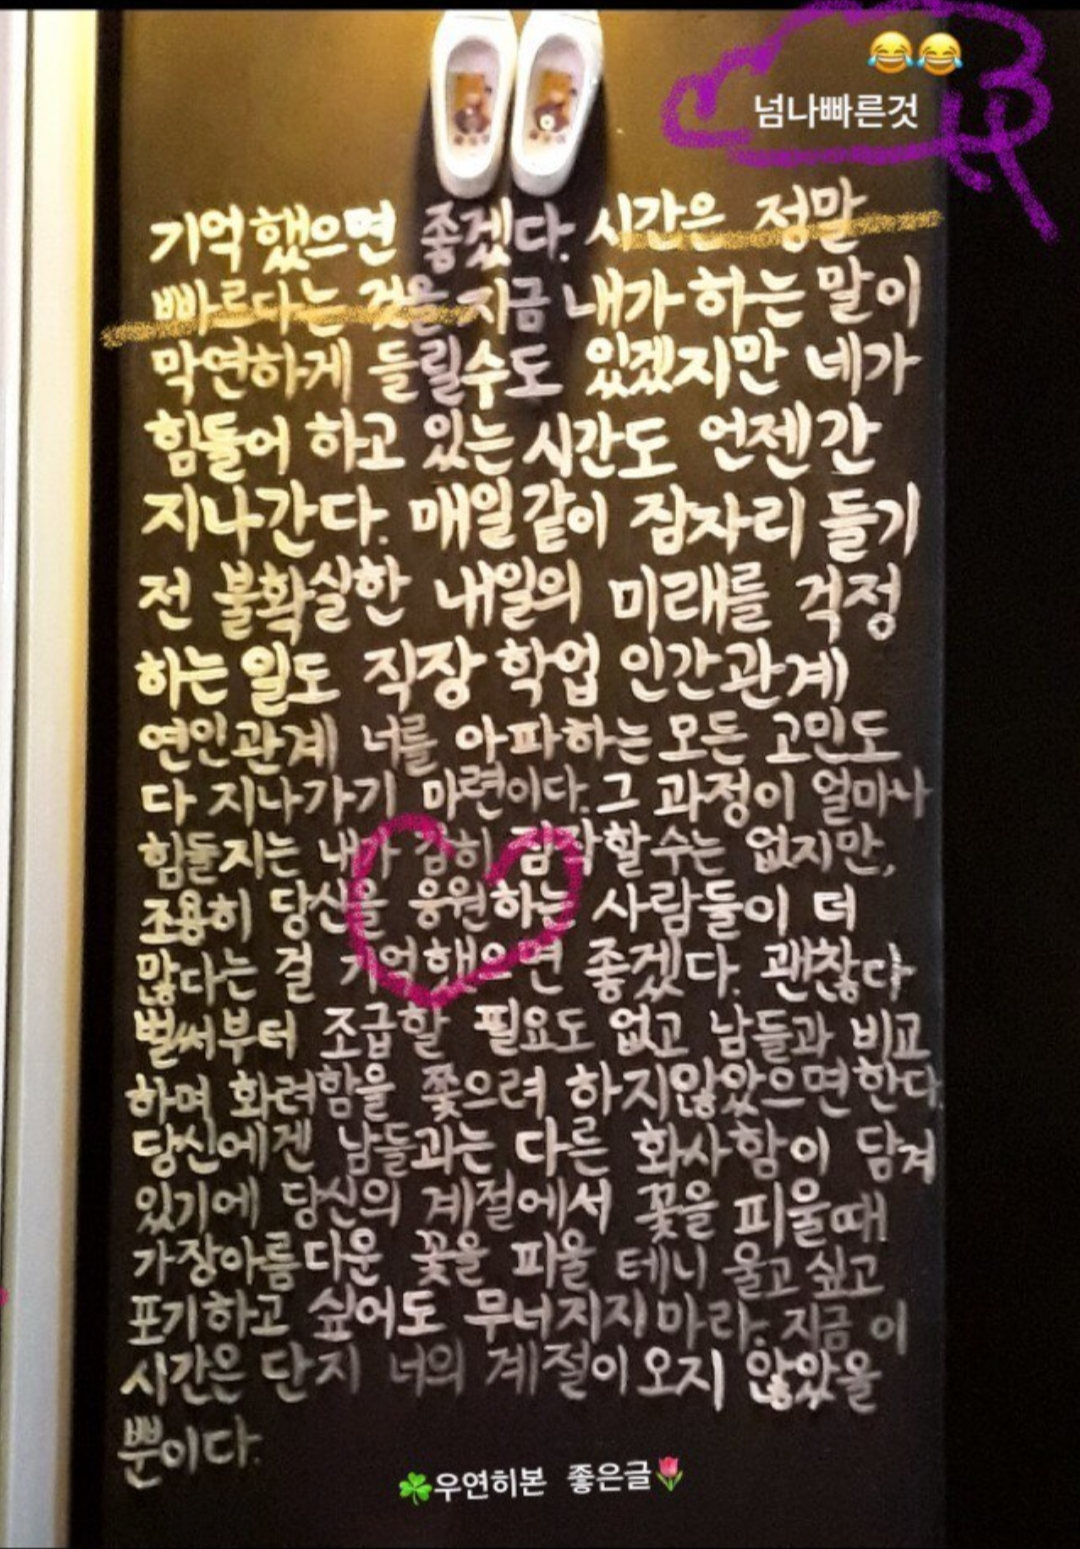 😂😂
넘나빠른것
기억했으면 좋겠다. 시간은 정말
빠르다는 것을 지금 내가 하는 말이
막연하게 들릴수도 있겠지만 네가
힘들어 하고 있는 시간도 언젠간
지나간다. 매일같이 잠자리 들기
전 불확실한 내일의 미래를 걱정
하는 일도 직장 학업 인간관계
연인관계 너를 아파하는 모든 고민도
다 지나가기 마련이다. 그 과정이 얼마나
힘들지는 내가 감히 짐작할수는 없지만,
조용히 당신을 응원하는 사람들이 더
많다는 걸 기억했으면 좋겠다. 괜찮다
벌써부터 조급할 필요도 없고 남들과 비교
하며 화려함을 쫓으려 하지않았으면한다.
당신에겐 남들과는 다른 화사함이 담겨
있기에 당신의 계절에서 꽃을 피울때
가장아름다운 꽃을 피울 테니 울고 싶고
포기하고 싶어도 무너지지마라. 지금 이
시간은 단지 너의 계절이오지 않았을
뿐이다.
☘️우연히본 좋은글🌷